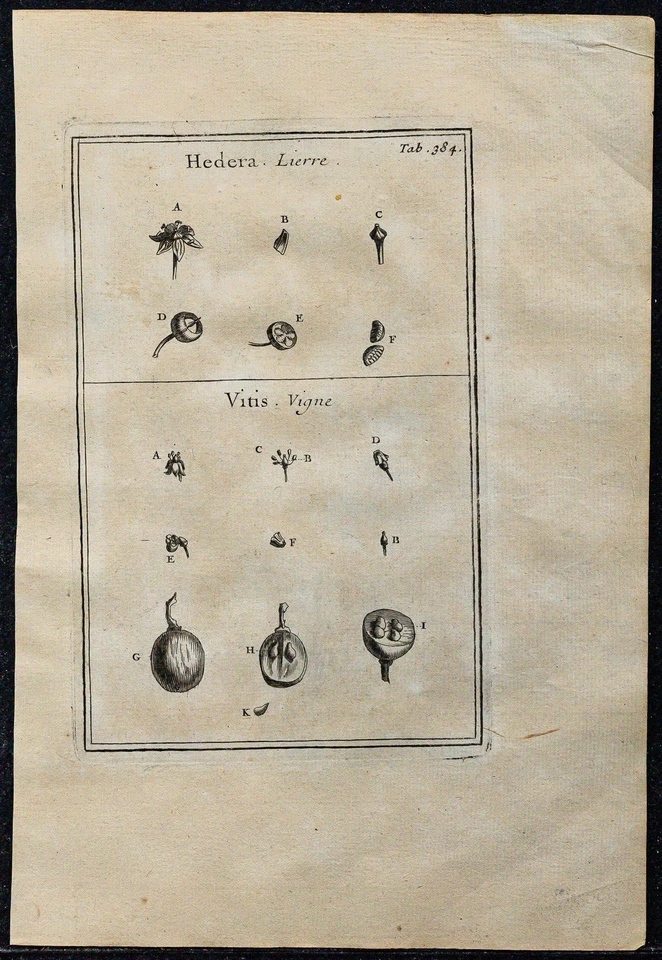 Tab. 384.
Hedera. Lierre.
A B C
D E F
Vitis. Vigne
A C B D
E F B
G H I
K